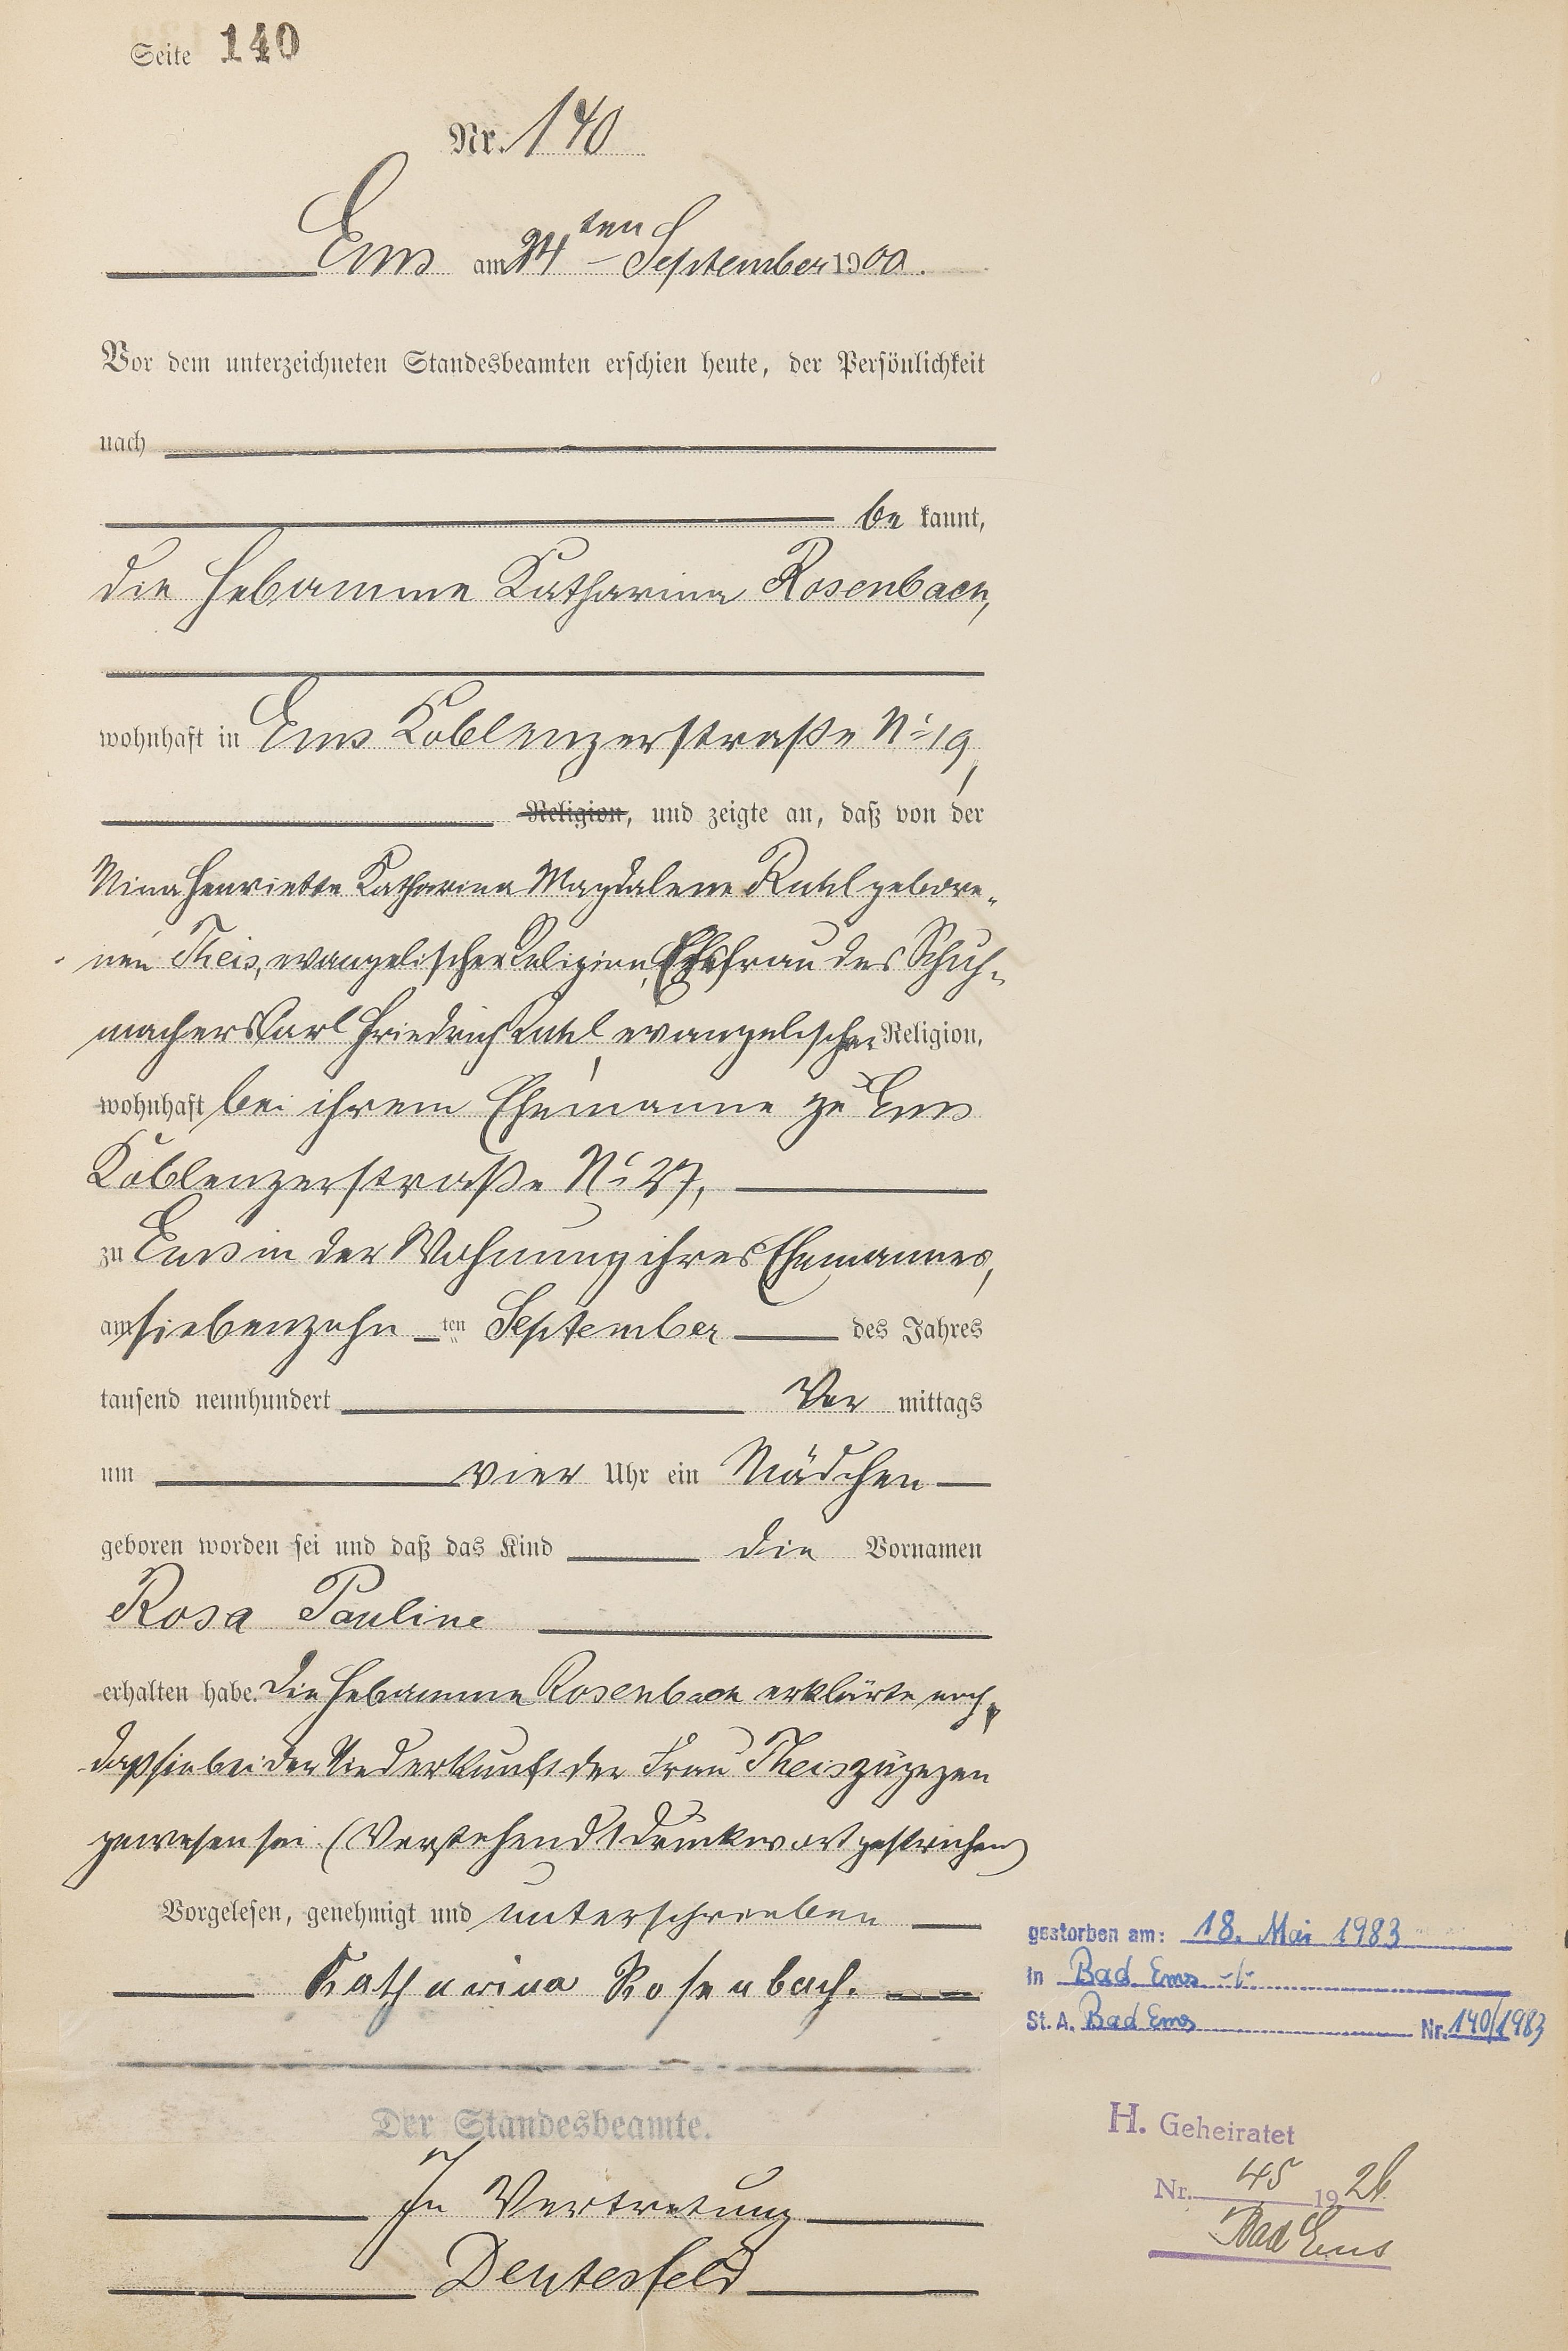 Seite 140
Nr. 140
Ems am 24ten September 1900.
Vor dem unterzeichneten Standesbeamten erschien heute, der Persönlichkeit
nach
be kannt,
die Hebamme Katharina Rosenbach,
wohnhaft in Ems Koblenzerstraße No 19,
Religion, und zeigte an, daß von der
Nina Henriette Katharina Magdalene gebore-
nen Theis, evangelischer Religion, Ehefrau des Schuh-
machers Carl Friedrich evangelischer Religion,
wohnhaft bei ihrem Ehemanne zu Ems
Koblenzerstraße No 27,
zu Ems in der Wohnung ihres Ehemannes,
am siebenzehn ten September des Jahres
tausend neunhundert Vor mittags
um vier Uhr ein Mädchen
geboren worden sei und daß das Kind die Vornamen
Rosa Pauline
erhalten habe. Die Hebamme Rosenbach erklärte noch,
daß sie bei der Niederkunft der Frau Theis zugegen
gewesen sei. (Vorstehend 1 Druckwort gestrichen)
Vorgelesen, genehmigt und unterschrieben
Katharina Rosenbach.
Der Standesbeamte.
In Vertretung
Deutesfeld
gestorben am: 18. Mai 1983
in Bad Ems -/-
St. A. Bad Ems Nr. 140/1983
H. Geheiratet
Nr. 45 1926
Bad Ems